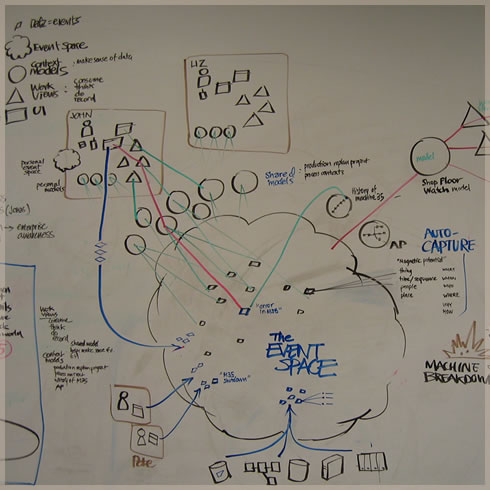 Data = events
Event space
Context models : make sense of data
Work Views : consume
think
do
record
UI
JOHN
LIZ
personal event space
personal models
Shared models : production replan project
process contracts
History of machine 35
model
Shop Floor Watch model
AP
AUTO-CAPTURE
"Magnetic potential"
thing what
time/sequence when
people who
place where
why
how
"error in M35"
The EVENT SPACE
"M35 stream"
MACHINE BREAKDOWN
→ enterprise awareness
Work views
consume
think
do
record
context models
shared model
production replan project
history of M35
AP
Pete